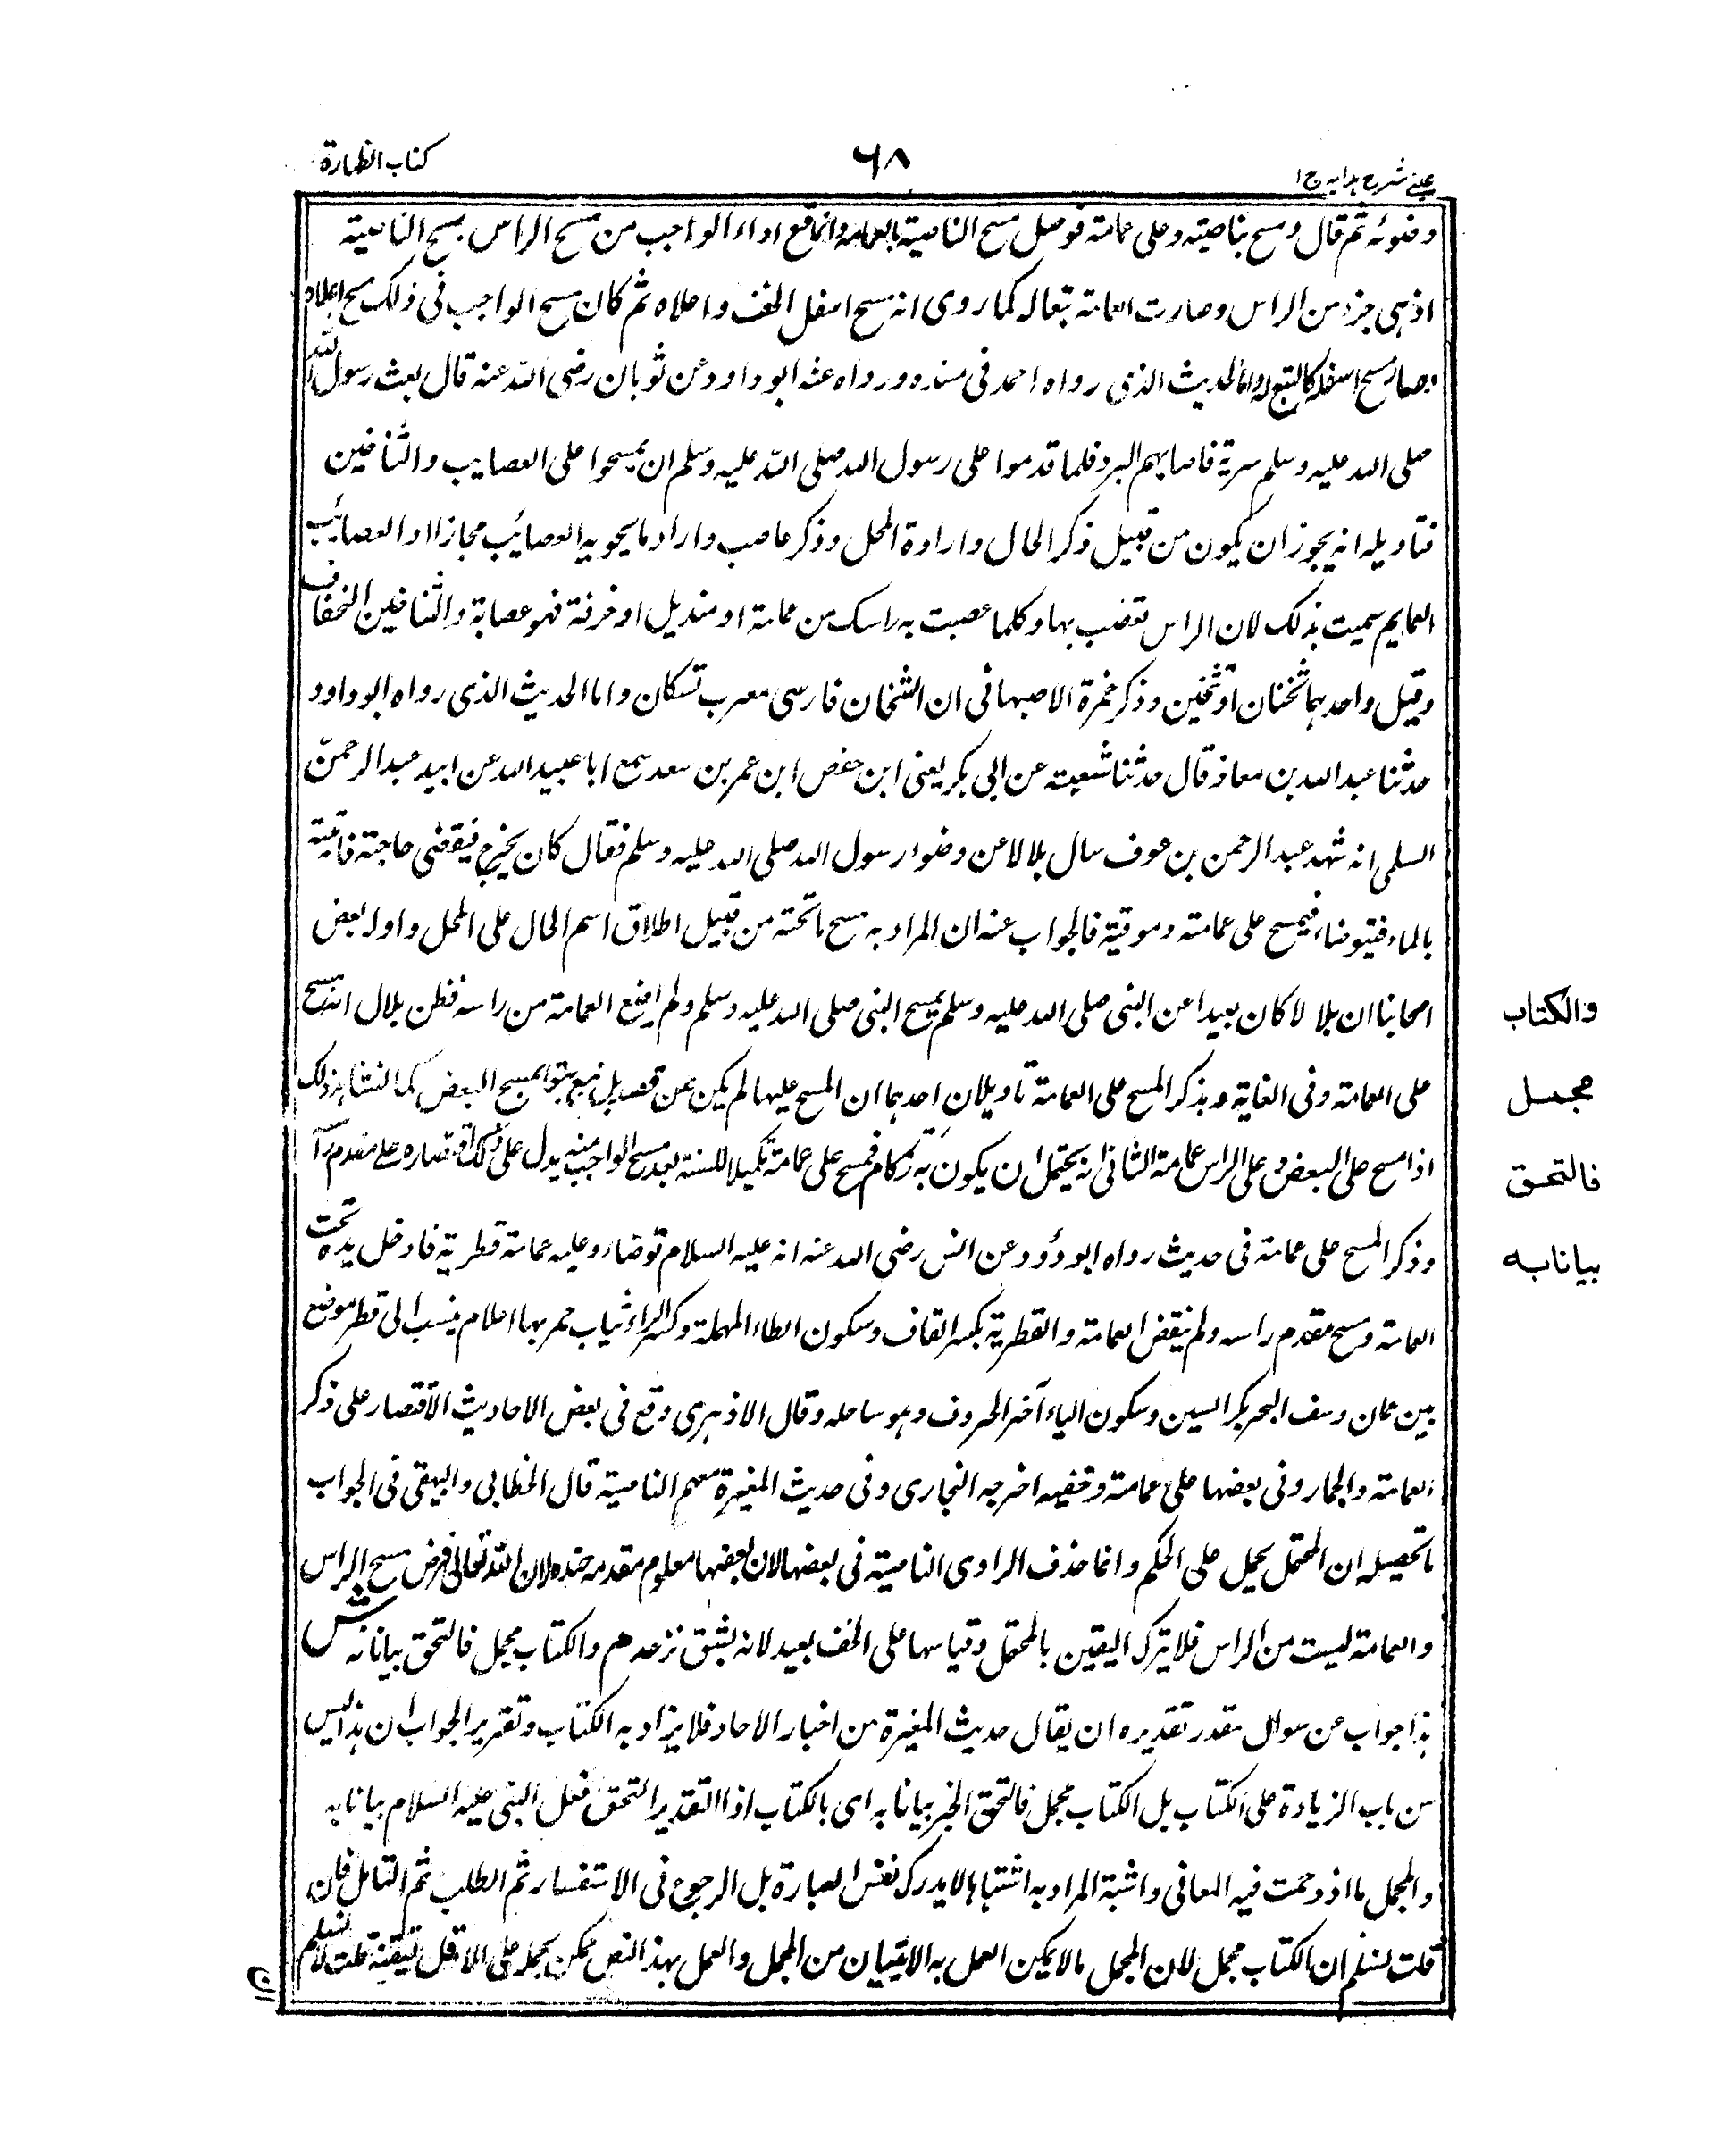 عینی شرح ہدایہ ج ۱
۶۸
کتاب الطہارة
وضوئہ ثم قال ومسح بناصیتہ وعلی عمامتہ فوصل مسح الناصیة بالعمامة وانما وقع اداء الواجب من مسح الراس بمسح الناصیة
اذ ہی جزء من الراس وصارت العمامة تبعا لہ کما روی انہ مسح اسفل الخف واعلاہ ثم کان مسح الواجب فی ذلک مسح اعلاہ
وصار مسح اسفلہ کالتبع لہ واما الحدیث الذی رواہ احمد فی مسندہ ورواہ عنہ ابو داود عن ثوبان رضی اللہ عنہ قال بعث رسول اللہ
صلی اللہ علیہ وسلم سریة فاصابہم البرد فلما قدموا علی رسول اللہ صلی اللہ علیہ وسلم ان یمسحوا علی العصایب والتساخین
فتاویلہ انہ یجوز ان یکون من قبیل ذکر الحال وارادة المحل وذکر عاصب واراد ما یحویہ العصائب مجازا او العصائب
العمایم سمیت بذلک لان الراس تعصب بہا وکلما عصبت بہ راسک من عمامة او مندیل او خرقة فہو عصابة والتساخین الخفاف
وقیل واحدہما ثخنان او ثخین وذکر حمزة الاصبہانی ان الثخان فارسی معرب تسکان واما الحدیث الذی رواہ ابو داود
حدثنا عبد اللہ بن معاذ قال حدثنا شعبة عن ابی بکر یعنی ابن حفص ابن عمر بن سعد سمع ابا عبید اللہ عن ابید عبد الرحمن
السلمی انہ شہد عبد الرحمن بن عوف سال بلالا عن وضوء رسول اللہ صلی اللہ علیہ وسلم فقال کان یخرج فیقضی حاجتہ فاتیتہ
بالماء فیتوضاء فیمسح علی عمامتہ وموقیہ فالجواب عنہ ان المراد بہ مسح ما تحتہ من قبیل اطلاق اسم الحال علی المحل واول بعض
اصحابنا ان بلالا کان بعیدا عن النبی صلی اللہ علیہ وسلم یمسح النبی صلی اللہ علیہ وسلم ولم یضع العمامة من راسہ فظن بلال انہ مسح
علی العمامة وفی الغایة ویذکر المسح علی العمامة تاویلان احدہما ان المسح علیہا لم یکن عن قصد بل تبع بمسح البعض کما نشاہد ذلک
اذا مسح علی البعض وعلی الراس عمامة الثانی انہ یحتمل ان یکون بہ زکام فمسح علی عمامتہ تکمیلا للسنة بعد مسح الواجب منہ یدل علی ذلک اقتصارہ علی مقدم راسہ
وذکر المسح علی عمامتہ فی حدیث رواہ ابو دؤود عن انس رضی اللہ عنہ انہ علیہ السلام توضاء وعلیہ عمامة قطریة فادخل یدہ تحت
العمامة ومسح مقدم راسہ ولم ینقض العمامة والقطریة بکسر القاف وسکون الطاء المہملة وکسر الراء ثیاب حمر بہا اعلام ینسب الی قطر موضع
بین عمان وسف البحر بکر السین وسکون الیاء آخر الحروف وہو ساحلہ وقال الازہری وقع فی بعض الاحادیث الاقتصار علی ذکر
العمامة والخمار وفی بعضہا علی عمامتہ وخفیہ اخرجہ البخاری وفی حدیث المغیرة معہم الناصیة قال الخطابی والبیہقی فی الجواب
ما تحصیلہ ان المحتمل یحمل علی الحکم وانما حذف الراوی الناصیة فی بعضہا لان بعضہا معلوم مقدمہ عندہ لان اللہ تعالی فرض مسح الراس
والعمامة لیست من الراس فلا یترک الیقین بالمحتمل وقیاسہا علی الخف بعید لانہ یشق نزعہ ھم والکتاب مجمل فالتحق بیانا بہ ش
ہذا جواب عن سوال مقدر تقدیرہ ان یقال حدیث المغیرة من اخبار الاحاد فلا یزاد بہ الکتاب وتقریر الجواب ان ہذا لیس
من باب الزیادة علی الکتاب بل الکتاب مجمل فالتحق الخبر بیانا بہ ای بالکتاب اذا التقدیر التحق فعل النبی علیہ السلام بیانا بہ
والمجمل ما ازدحمت فیہ المعانی واشتبہ المراد بہ اشتباہا لا یدرک نفس العبارة بل الرجوع فی الاستفسار ثم الطلب ثم التامل فان
قلت لا نسلم ان الکتاب مجمل لان المجمل ما لا یمکن العمل بہ الا ببیان من المجمل والعمل بہذا النص ممکن بحملہ علی الاقل لتیقنہ قلت لا نسلم
والکتاب
مجمل
فالتحق
بیانا بہ